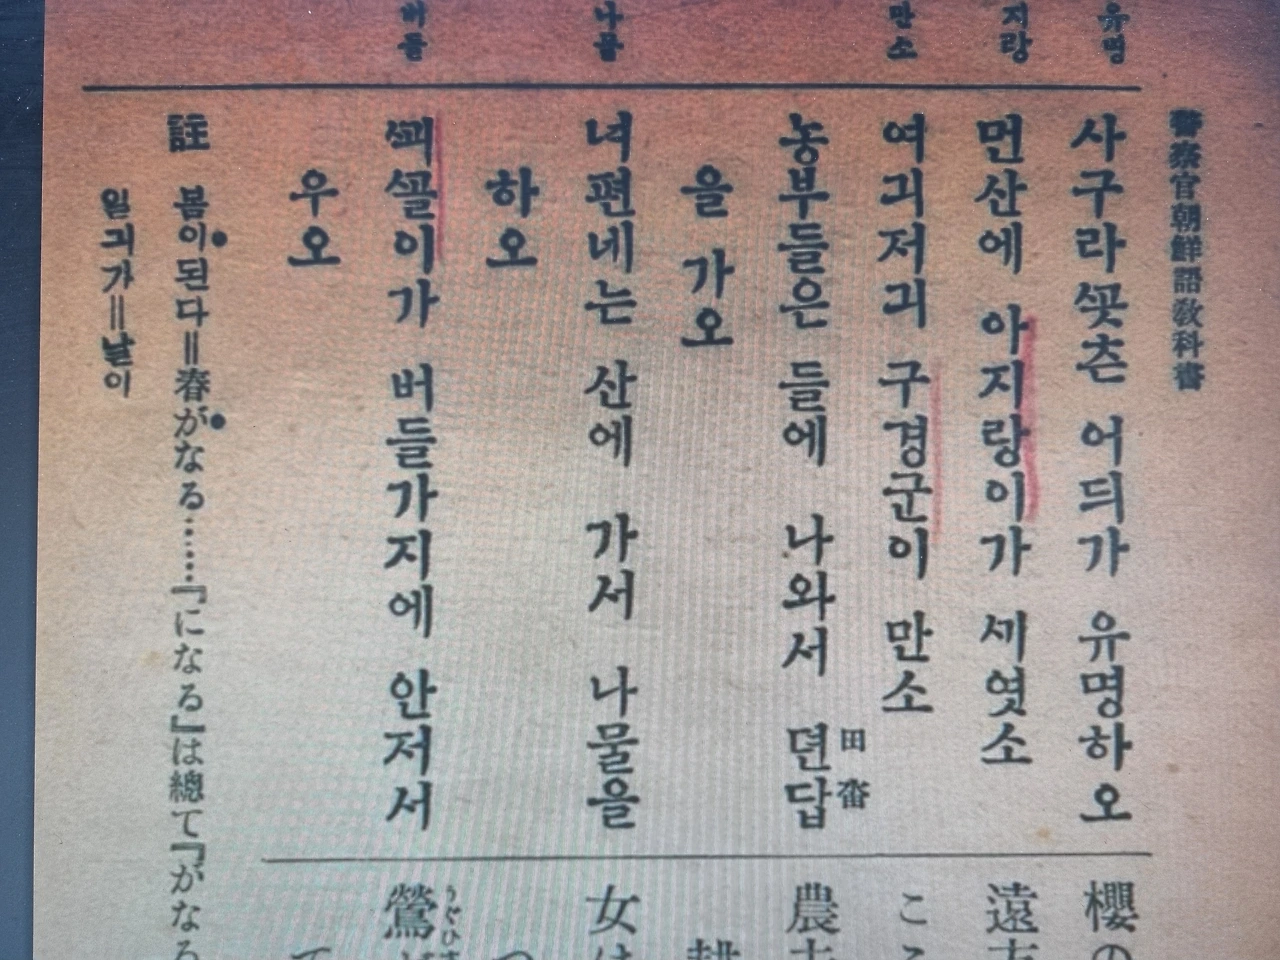 警察官朝鮮語敎科書
유명
지랑
만소
나물
버들
사구라ᄭᅩᆺ츤 어듸가 유명하오
먼산에 아지랑이가 ᄭᅵ엿소
여긔저긔 구경군이 만소
농부들은 들에 나와서 뎐답
田畓
을 가오
녀편네는 산에 가서 나물을
하오
ᄭᅬᄭᅩᆯ이가 버들가지에 안저서
우오
註 봄이된다=春がなる……『になる』は總て『がなる
일긔가=날이
櫻の
遠方
こゝ
農夫
耕
女は
つ
鶯が
うぐひす
て